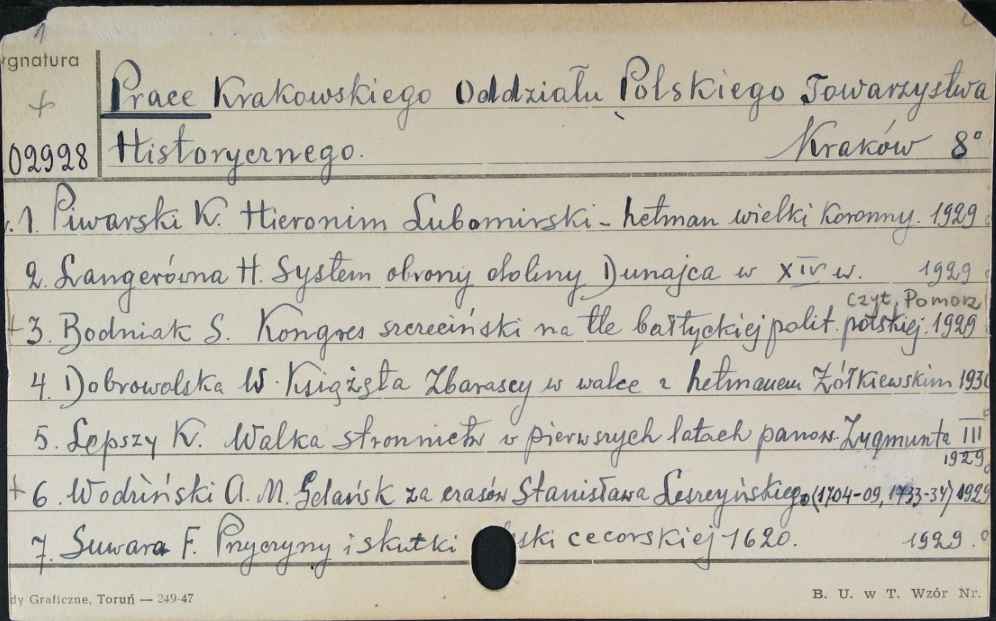 1
ygnatura
+
Prace Krakowskiego Oddziału Polskiego Towarzystwa
02928 Historycznego. Kraków 8°
1. Piwarski K. Hieronim Lubomirski - hetman wielki koronny. 1929
2. Langerówna H. System obrony doliny Dunajca w XIV w. 1929
czyt. Pomorz
+ 3. Bodniak S. Kongres szczeciński na tle bałtyckiej polit. polskiej. 1929
4. Dobrowolska W. Książęta Zbarascy w walce z hetmanem Żółkiewskim 1930
5. Lepszy K. Walka stronnictw w pierwszych latach panow. Zygmunta III
1929
+ 6. Wodziński A. M. Gdańsk za czasów Stanisława Leszczyńskiego (1704-09, 1733-34) 1929
7. Suwara F. Przyczyny i skutki ski cecorskiej 1620. 1929.
dy Graficzne, Toruń — 249-47 B. U. w T. Wzór Nr.